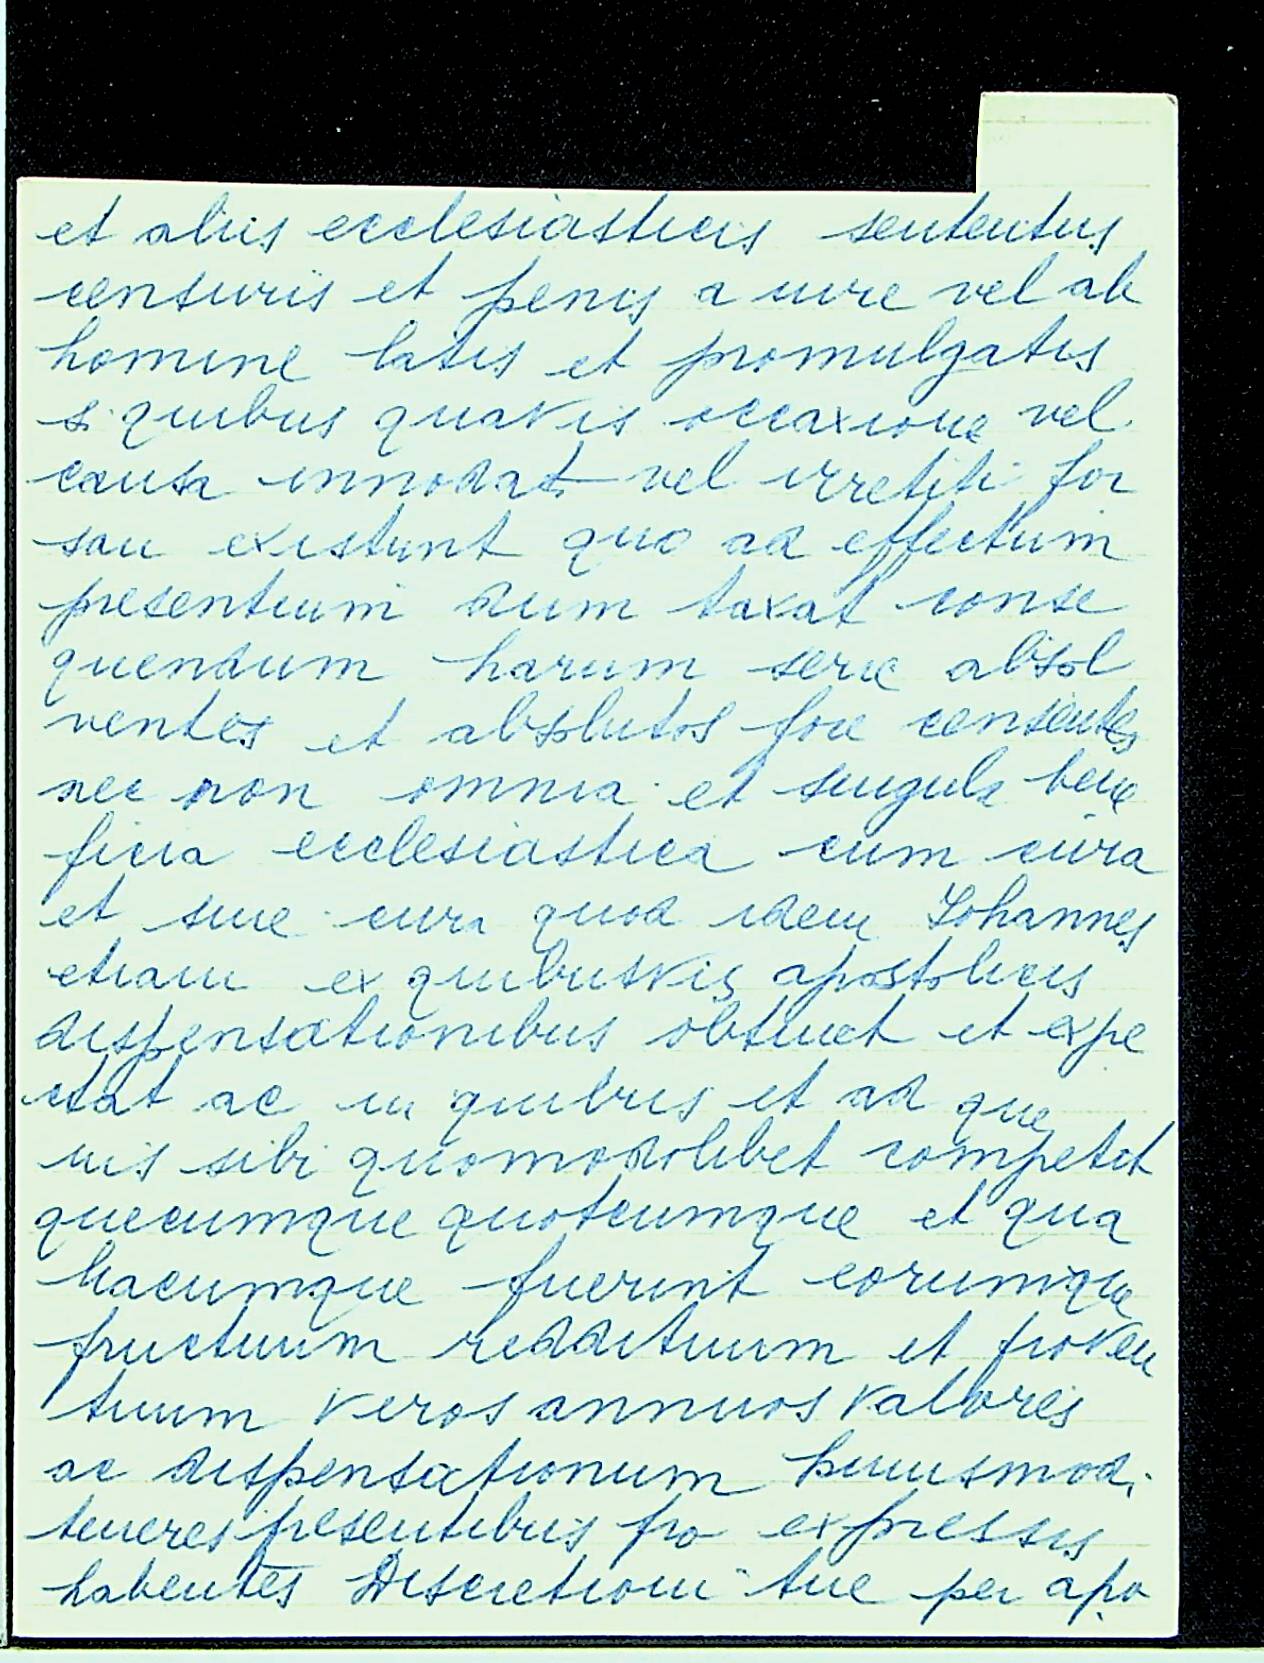 et aliis ecclesiasticis sententiis
censuris et penis a iure vel ab
homine latis et promulgatis
si quibus quavis occaxione vel
causa innodati vel irretiti for
san existunt quo ad effectum
presentium dum taxat conse
quendum harum serie absol
ventes et absolutos fore censentes
nec non omnia et singula bene
ficia ecclesiastica cum cura
et sine cura quod idem Iohannes
etiam ex quibusvis apostolicis
dispensationibus obtinet et expe
ctat ac in quibus et ad que
uis sibi quomodolibet competit
quecumque quotcumque et qua
liacumque fuerint eorumque
fructuum reddituum et proven
tuum veros annuos valores
ac dispensationum huiusmodi
teneres presentibus pro expressis
habentes Discretioni tue per apo